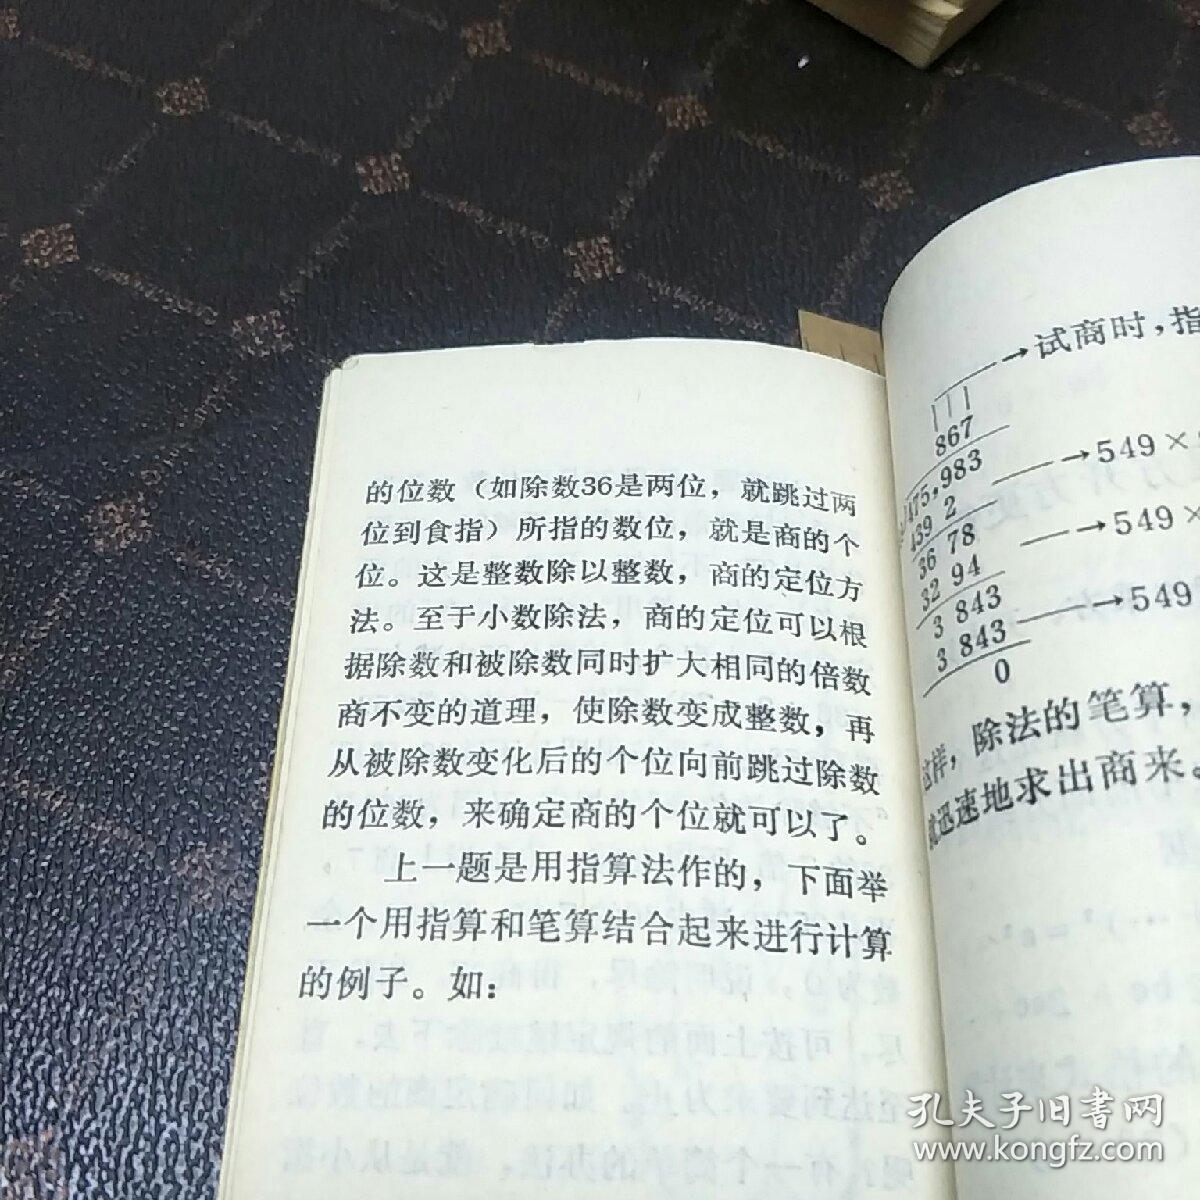 的位数（如除数36是两位，就跳过两
位到食指）所指的数位，就是商的个
位。这是整数除以整数，商的定位方
法。至于小数除法，商的定位可以根
据除数和被除数同时扩大相同的倍数
商不变的道理，使除数变成整数，再
从被除数变化后的个位向前跳过除数
的位数，来确定商的个位就可以了。
上一题是用指算法作的，下面举
一个用指算和笔算结合起来进行计算
的例子。如：
→试商时，指
867
475,983
→549×
439 2
36 78
→549×
32 94
3 843
→549
3 843
0
这样，除法的笔算，
迅速地求出商来。
孔夫子旧书网
www.kongfz.com